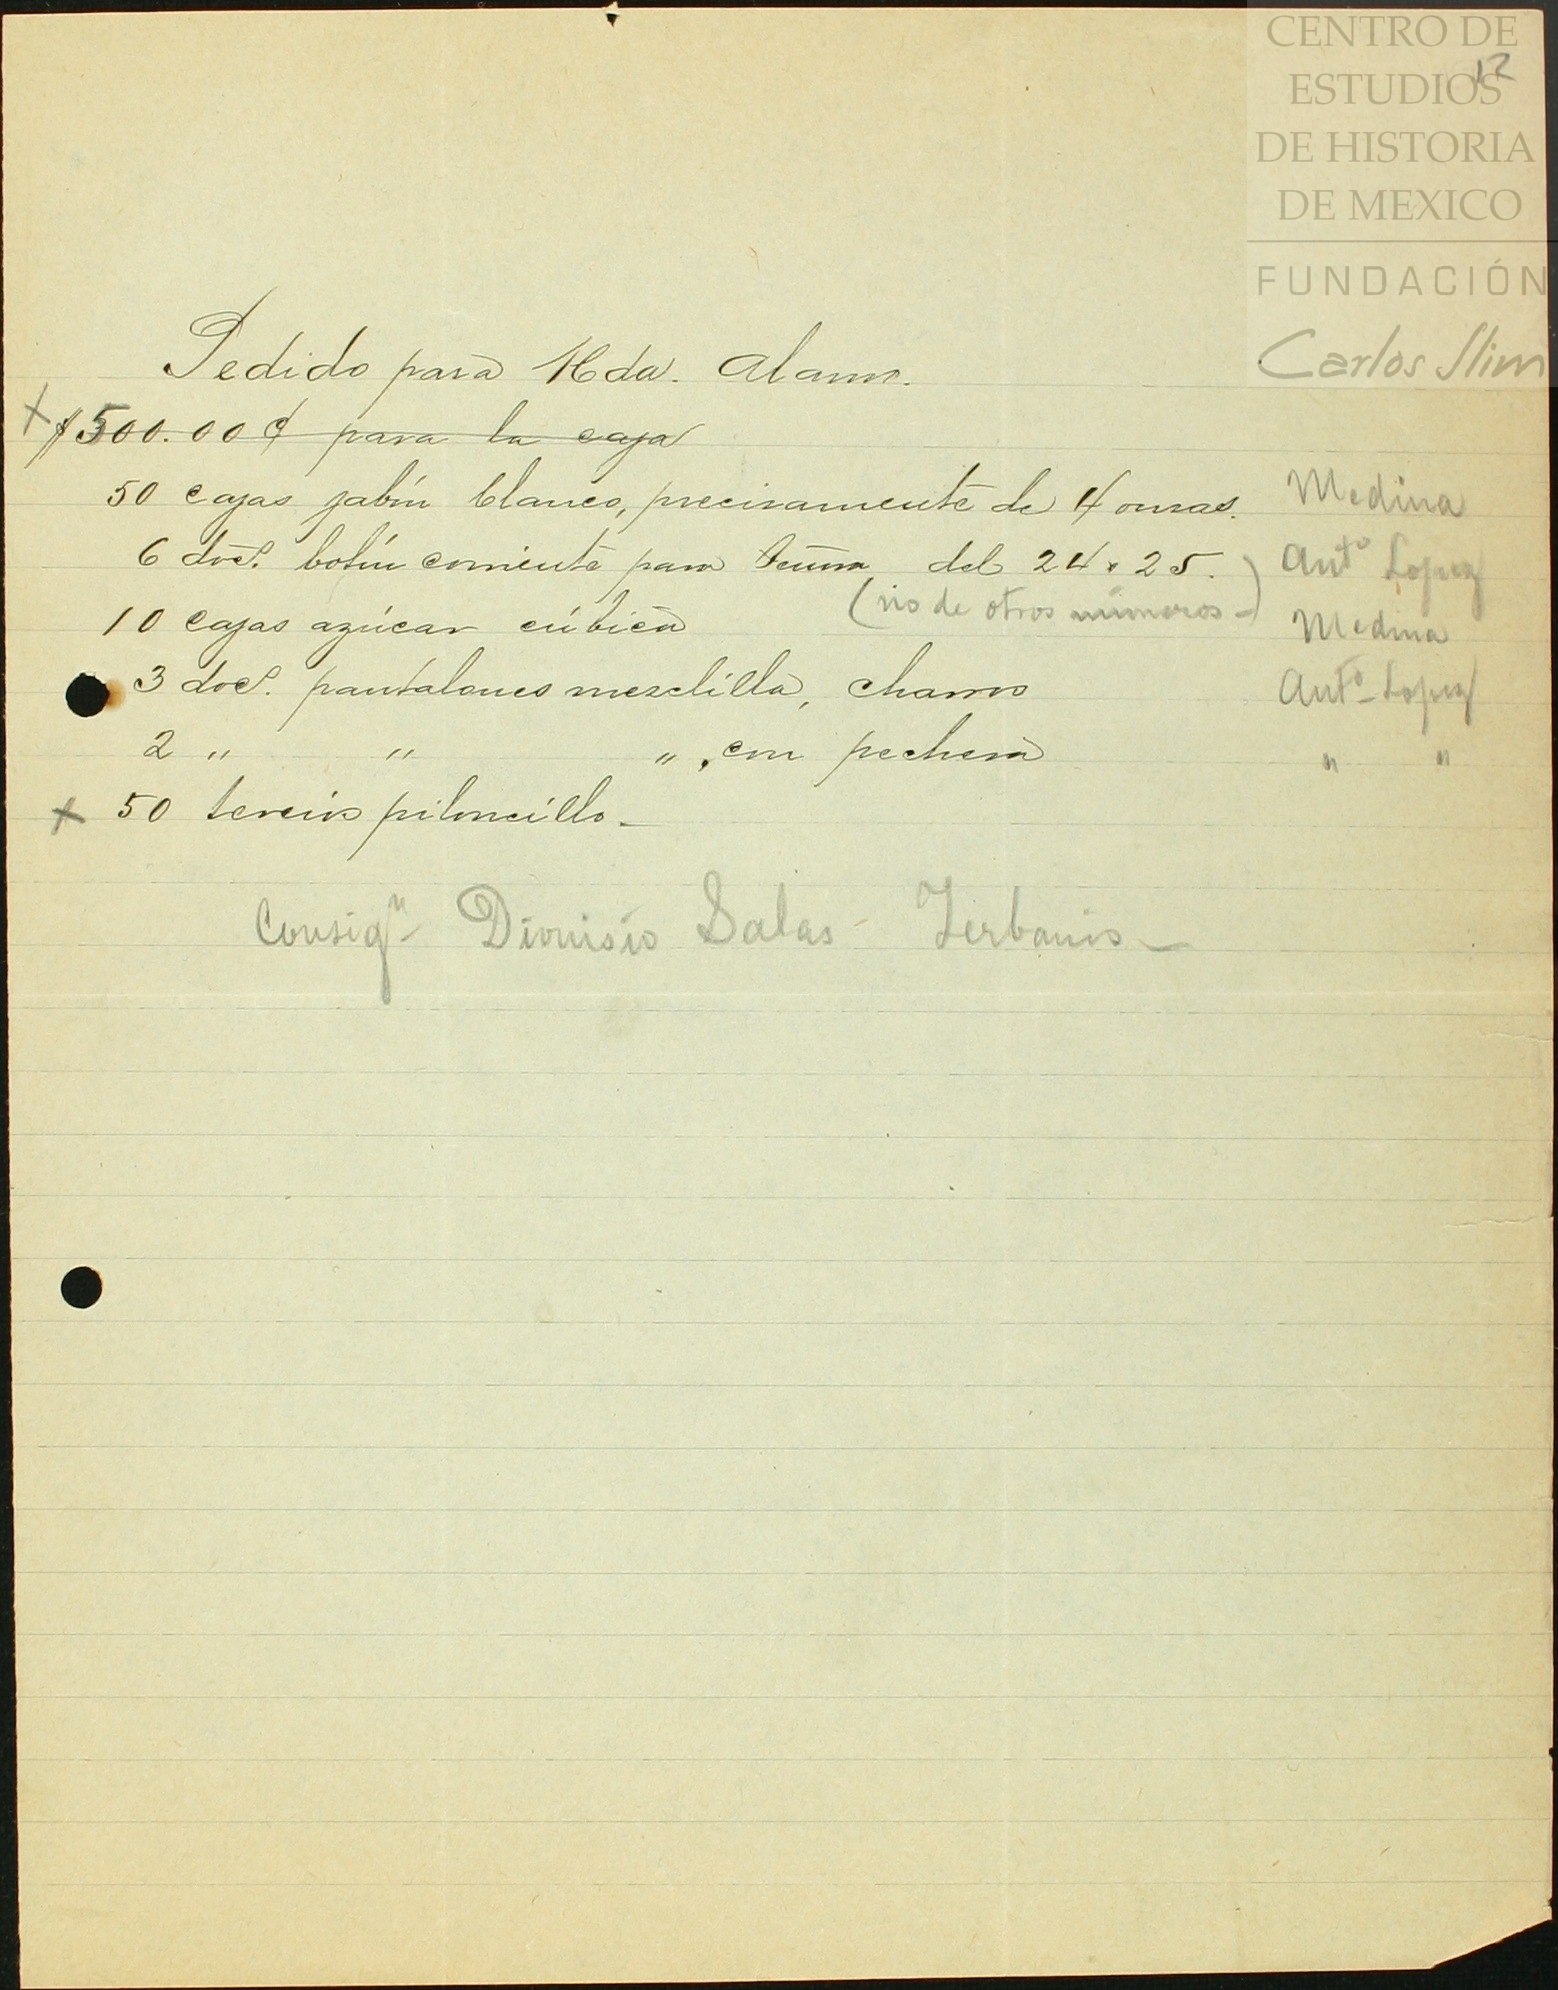 CENTRO DE
ESTUDIOS
DE HISTORIA
DE MEXICO
FUNDACIÓN
Carlos Slim
12
Pedido para Hda. Alamo.
x $500.00 ¢ para la caja
50 cajas jabón blanco, precisamente de 4 onzas. Medina
6 doc. botín corriente para del 24 y 25. Antº Lopez
(no de otros números -)
10 cajas azúcar cúbica Medina
3 doc. pantalones mezclilla, charro Antº Lopez
2 " " ", con pechera " "
x 50 tercios piloncillo.
Consigⁿ Dionisio Salas - Yerbanis